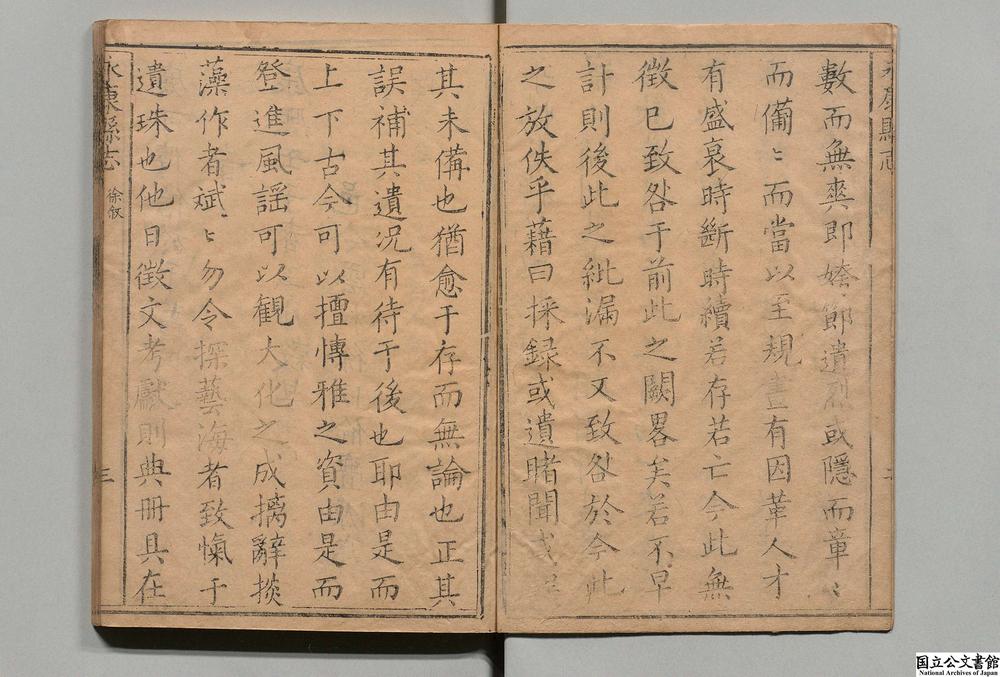 永康縣志
數而無爽即姱節遺烈或隱而章〻
而備〻而當以至規畫有因革人才
有盛衰時斷時續若存若亡今此無
徵已致咎于前此之闕畧矣若不早
計則後此之紕漏不又致咎於今此
之放佚乎藉曰採録或遺睹聞或
二
其未備也猶愈于存而無論也正其
誤補其遺况有待于後也耶由是而
上下古今可以擅愽雅之資由是而
登進風謡可以觀大化之成摛辭掞
藻作者斌〻勿令探藝海者致慨于
遺珠也他日徵文考獻則典册具在
永康縣志 徐叙 三
国立公文書館
National Archives of Japan